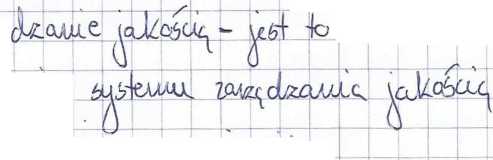 dzanie jakością - jest to
systemu zarządzania jakością